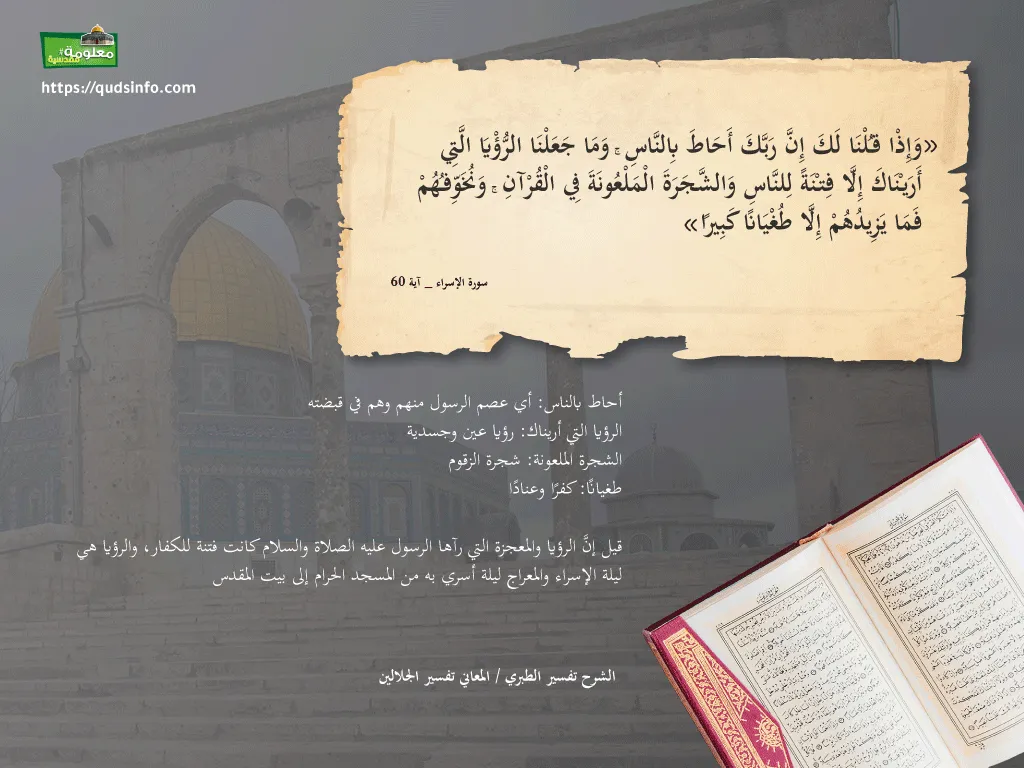 #معلومة
مقدسية
https://qudsinfo.com
«وَإِذْ قُلْنَا لَكَ إِنَّ رَبَّكَ أَحَاطَ بِالنَّاسِ ۚ وَمَا جَعَلْنَا الرُّؤْيَا الَّتِي
أَرَيْنَاكَ إِلَّا فِتْنَةً لِلنَّاسِ وَالشَّجَرَةَ الْمَلْعُونَةَ فِي الْقُرْآنِ ۚ وَنُخَوِّفُهُمْ
فَمَا يَزِيدُهُمْ إِلَّا طُغْيَانًا كَبِيرًا»
سورة الإسراء _ آية 60
أحاط بالناس: أي عصم الرسول منهم وهم في قبضته
الرؤيا التي أريناك: رؤيا عين وجسدية
الشجرة الملعونة: شجرة الزقوم
طغيانًا: كفرًا وعنادًا
قيل إنَّ الرؤيا والمعجزة التي رآها الرسول عليه الصلاة والسلام كانت فتنة للكفار، والرؤيا هي
ليلة الإسراء والمعراج ليلة أسري به من المسجد الحرام إلى بيت المقدس
الشرح تفسير الطبري / المعاني تفسير الجلالين